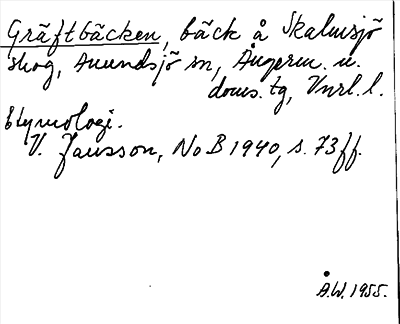 Gräftbäcken, bäck å Skalmsjö
skog, Anundsjö sn, Ångerm. n.
doms.tg, Vnrl. l.
Etymologi.
V. Jansson, NoB 1940, s. 73ff.
Å.W. 1955.